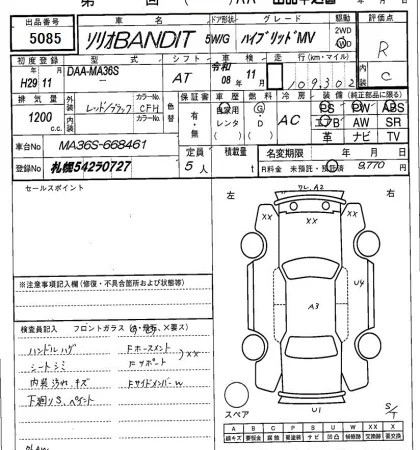 出品番号 車名 ドア形状 グレード 駆動 評価点
5085 ソリオBANDIT 5W/G ハイブリッドMV 2WD WD R
初度登録 型式 シフト 車検 走行(km・マイル)
H29 11月 DAA-MA36S AT 令和 08年 11月 109,302 C
排気量 外装 カラーNo. 色替 保証書 車歴 燃料 冷房 装備(純正部品に限る)
1200 c.c. レッド/ブラック CFH 有・無 自家用 レンタ G・D AC PS PW ABS
内装 カラーNo. エアB AW SR
革 ナビ TV
車台No MA36S-668461 定員 積載量 名変期限 年 月 日
登録No 札幌542ら0727 5人 t R料金 未預託・預託済 9,770円
セールスポイント 左 右
ワレ、A2
XX XX
※注意事項記入欄(修復・不具合箇所および状態等)
U4
A3
検査員記入 フロントガラス
ハンドルハゲ Fホースメント
シートシミ Fサポート XX
内装汚れ、キズ FサイドメンバーW
下廻りS、ペイント
スペア U1 S/T
A B C P S U W XX X
線キズ 要板金 腐蝕 要塗装 サビ 凹凸 補修跡 交換跡 要交換